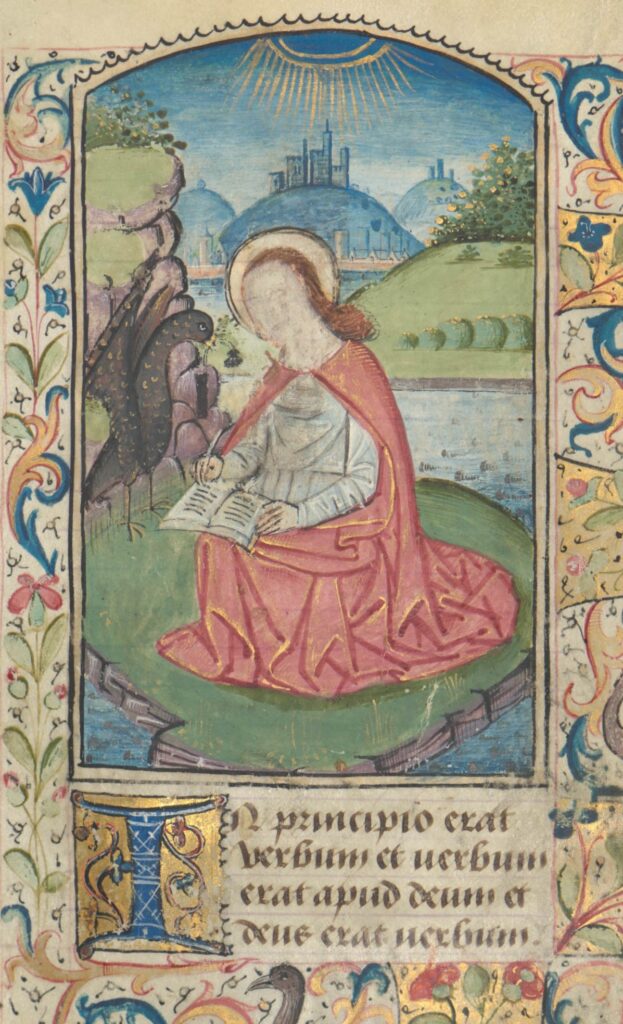 In principio erat
verbum et uerbum
erat apud deum et
deus erat uerbum.